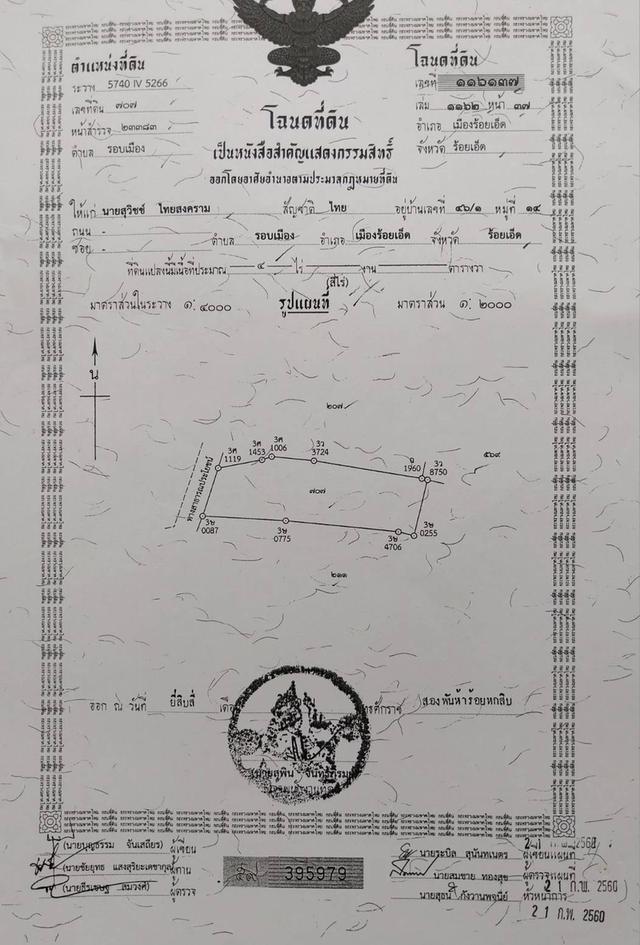 ตำแหน่งที่ดิน
ระวาง 5740 IV 5266
เลขที่ดิน ๗๐๗
หน้าสำรวจ ๒๓๙๘๓
ตำบล รอบเมือง
โฉนดที่ดิน
เลขที่ ๑๑๖๑๓๗
เล่ม ๑๑๖๒ หน้า ๓๗
อำเภอ เมืองร้อยเอ็ด
จังหวัด ร้อยเอ็ด
โฉนดที่ดิน
เป็นหนังสือสำคัญแสดงกรรมสิทธิ์
ออกโดยอาศัยอำนาจตามประมวลกฎหมายที่ดิน
ให้แก่ นายสุวิชช์ ไทยสงคราม สัญชาติ ไทย อยู่บ้านเลขที่ ๔๖/๑ หมู่ที่ ๑๔
ถนน -
ซอย - ตำบล รอบเมือง อำเภอ เมืองร้อยเอ็ด จังหวัด ร้อยเอ็ด
ที่ดินแปลงนี้มีเนื้อที่ประมาณ ๔ ไร่ งาน ตารางวา
(สี่ไร่)
มาตราส่วนในระวาง ๑: ๔๐๐๐ รูปแผนที่ มาตราส่วน ๑: ๒๐๐๐
น
๒๐๗
๕๖๙
3ศ 1119
3ศ 1453
3ศ 1006
3ว 3724
1960
3ว 8750
ทางสาธารณประโยชน์
๗๐๗
3ษ 0087
3ษ 0775
3ษ 4706
3ษ 0255
๒๑๑
ออก ณ วันที่ ยี่สิบสี่ สองพันห้าร้อยหกสิบ
(นายบุญธรรม จันเสถียร) ผู้เขียน
(นายชัยยุทธ แสงสุริยะเดชากุล) ผู้ทาน
ผู้ตรวจ
395979
นายระบิล สุนันทเนตร ผู้เขียนแผนที่
นายสมชาย ทองสุข ผู้ตรวจแผนที่
2 1 ก.พ. 2560
หัวหน้าการ
2 1 ก.พ. 2560